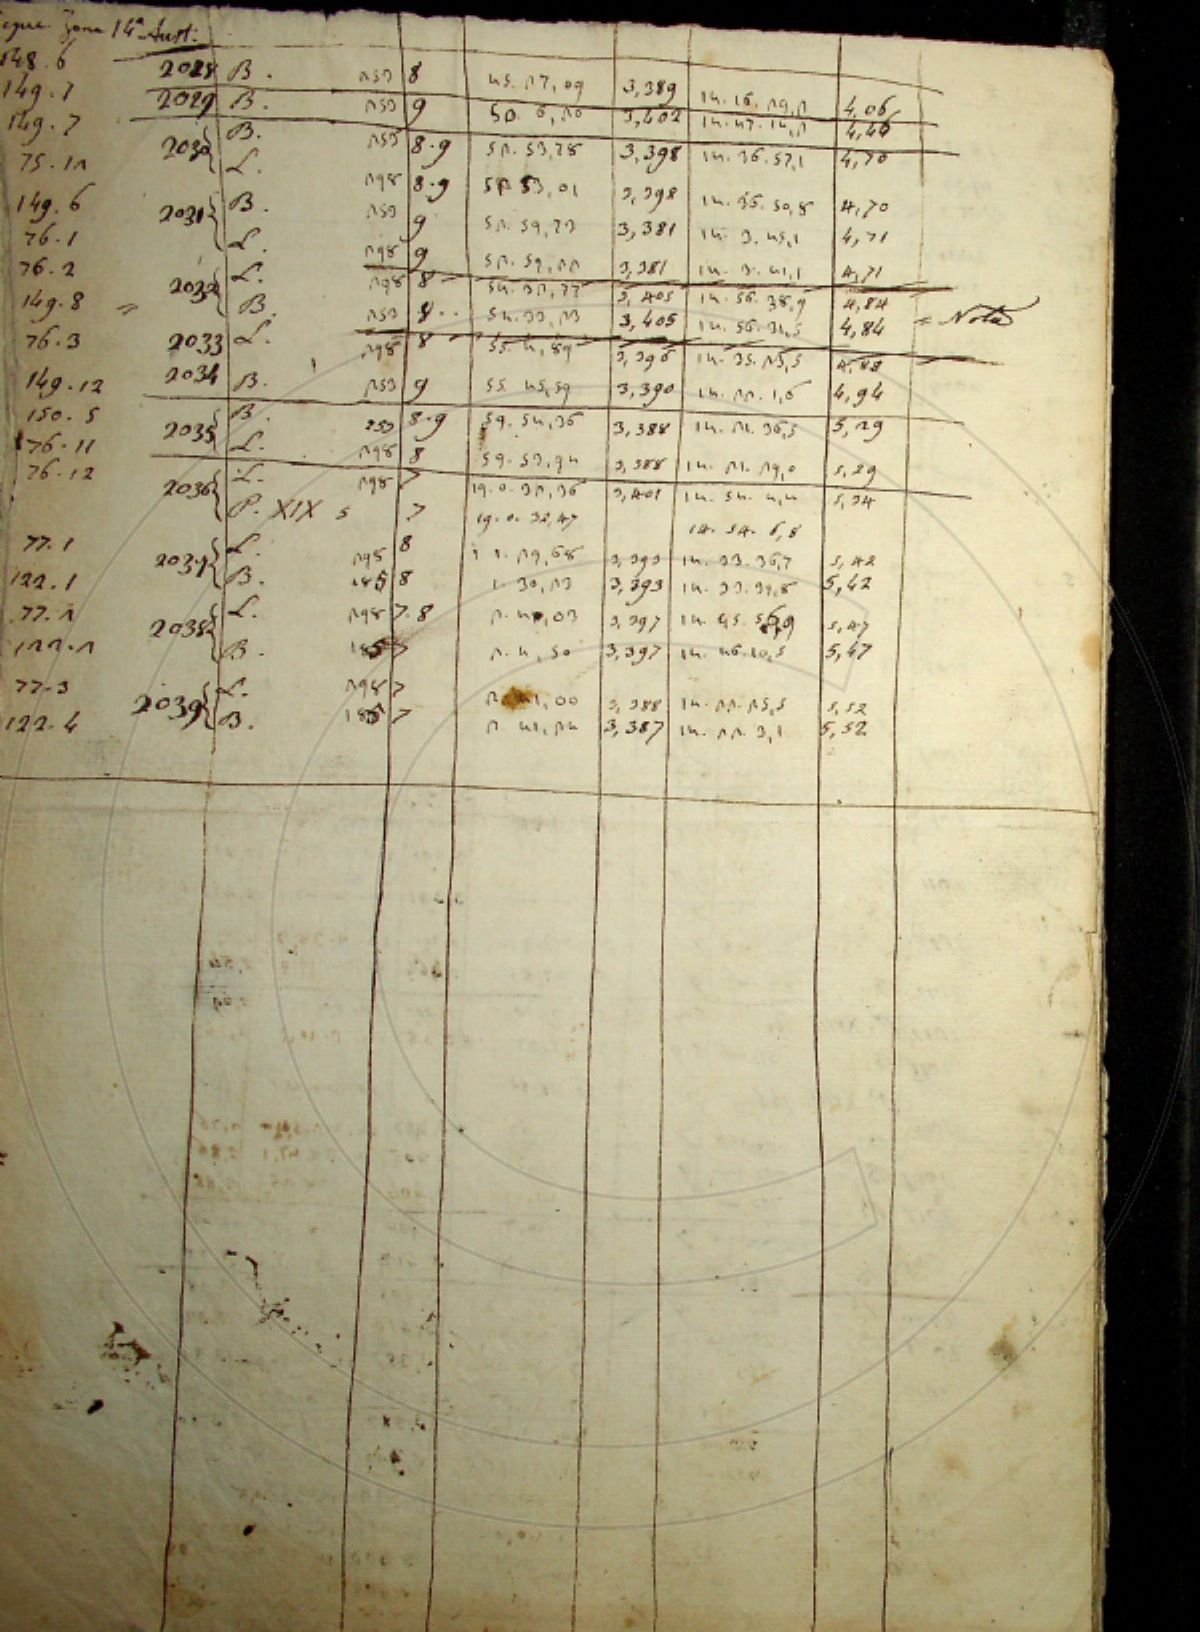 Segue Zona 14ª Aust.
148.6 2028 B. 253 8 45.27,09 3,389 14.16.29,2 4,06
149.1 2029 B. 253 9 50.6,20 3,402 14.47.14,2 4,46
149.7 2030 B. 253 8.9 52.53,28 3,398 14.36.57,1 4,70
75.12 L. 298 8.9 52.53,01 3,398 14.35.50,8 4,70
149.6 2031 B. 253 9 52.59,23 3,381 14.3.45,1 4,71
76.1 L. 298 9 52.59,22 3,381 14.3.41,1 4,71
76.2 2032 L. 298 8 3,405 14.56.38,9 4,84
149.8 = B. 253 8.. 54.33,23 3,405 14.56.31,5 4,84 = Nota
76.3 2033 L. 298 8 55.4,89 3,396 14.35.25,5 4,88
149.12 2034 B. 253 9 55.45,59 3,390 14.22.1,6 4,94
150.5 2035 B. 253 8.9 59.54,36 3,388 14.21.36,5 5,29
76.11 L. 298 8 59.53,94 3,388 14.21.29,0 5,29
76.12 2036 L. 298 7 19.0.32,36 3,401 14.54.4,4 5,34
P. XIX 5 7 19.0.32,47 14.54.6,8
77.1 2037 L. 298 8 1.29,68 3,393 14.33.36,7 5,42
122.1 B. 185 8 1.30,23 3,393 14.33.39,8 5,42
77.2 2038 L. 298 7.8 2.4,03 3,397 14.45.56,9 5,47
122.2 B. 185 7 2.4,50 3,397 14.46.10,5 5,47
77.3 2039 L. 298 7 2.41,00 3,388 14.22.25,5 5,52
122.4 B. 185 7 2.41,24 3,387 14.22.3,1 5,52